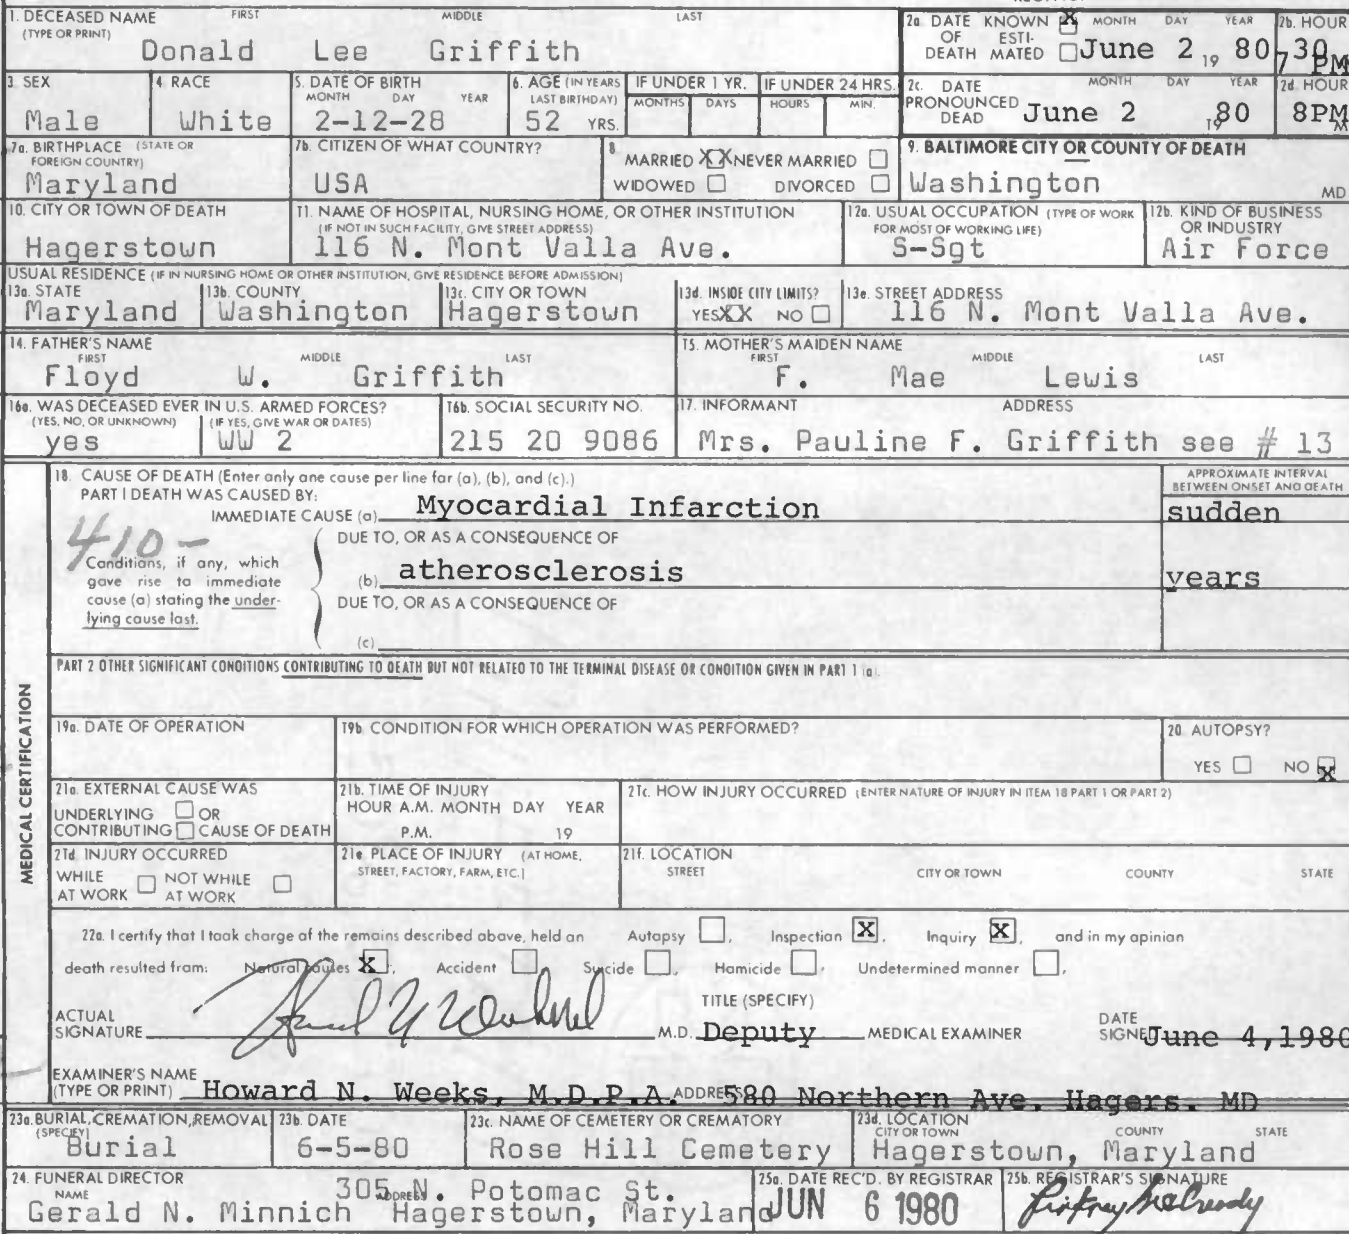 1. DECEASED NAME FIRST MIDDLE LAST
(TYPE OR PRINT)
Donald Lee Griffith
2a. DATE KNOWN X MONTH DAY YEAR
OF ESTI-
DEATH MATED June 2 19 80
2b. HOUR
7 30 PM
3. SEX
Male
4. RACE
White
5. DATE OF BIRTH
MONTH DAY YEAR
2-12-28
6. AGE (IN YEARS
LAST BIRTHDAY)
52 YRS.
IF UNDER 1 YR.
MONTHS DAYS
IF UNDER 24 HRS.
HOURS MIN.
2c. DATE MONTH DAY YEAR
PRONOUNCED
DEAD June 2 19 80
2d. HOUR
8PM
M
7a. BIRTHPLACE (STATE OR
FOREIGN COUNTRY)
Maryland
7b. CITIZEN OF WHAT COUNTRY?
USA
8.
MARRIED XX NEVER MARRIED
WIDOWED DIVORCED
9. BALTIMORE CITY OR COUNTY OF DEATH
Washington MD
10. CITY OR TOWN OF DEATH
Hagerstown
11. NAME OF HOSPITAL, NURSING HOME, OR OTHER INSTITUTION
(IF NOT IN SUCH FACILITY, GIVE STREET ADDRESS)
116 N. Mont Valla Ave.
12a. USUAL OCCUPATION (TYPE OF WORK
FOR MOST OF WORKING LIFE)
S-Sgt
12b. KIND OF BUSINESS
OR INDUSTRY
Air Force
USUAL RESIDENCE (IF IN NURSING HOME OR OTHER INSTITUTION, GIVE RESIDENCE BEFORE ADMISSION)
13a. STATE
Maryland
13b. COUNTY
Washington
13c. CITY OR TOWN
Hagerstown
13d. INSIDE CITY LIMITS?
YES XX NO
13e. STREET ADDRESS
116 N. Mont Valla Ave.
14. FATHER'S NAME
FIRST MIDDLE LAST
Floyd W. Griffith
15. MOTHER'S MAIDEN NAME
FIRST MIDDLE LAST
F. Mae Lewis
16a. WAS DECEASED EVER IN U.S. ARMED FORCES?
(YES, NO, OR UNKNOWN) (IF YES, GIVE WAR OR DATES)
yes WW 2
16b. SOCIAL SECURITY NO.
215 20 9086
17. INFORMANT ADDRESS
Mrs. Pauline F. Griffith see # 13
MEDICAL CERTIFICATION
18. CAUSE OF DEATH (Enter only one cause per line for (a), (b), and (c).)
PART I DEATH WAS CAUSED BY:
IMMEDIATE CAUSE (a) Myocardial Infarction
APPROXIMATE INTERVAL
BETWEEN ONSET AND DEATH
sudden
410-
Conditions, if any, which
gave rise to immediate
cause (a) stating the under-
lying cause last.
DUE TO, OR AS A CONSEQUENCE OF
(b) atherosclerosis
years
DUE TO, OR AS A CONSEQUENCE OF
(c)
PART 2 OTHER SIGNIFICANT CONDITIONS CONTRIBUTING TO DEATH BUT NOT RELATED TO THE TERMINAL DISEASE OR CONDITION GIVEN IN PART 1 (a).
19a. DATE OF OPERATION
19b. CONDITION FOR WHICH OPERATION WAS PERFORMED?
20. AUTOPSY?
YES NO X
21a. EXTERNAL CAUSE WAS
UNDERLYING OR
CONTRIBUTING CAUSE OF DEATH
21b. TIME OF INJURY
HOUR A.M. MONTH DAY YEAR
P.M. 19
21c. HOW INJURY OCCURRED (ENTER NATURE OF INJURY IN ITEM 18 PART 1 OR PART 2)
21d INJURY OCCURRED
WHILE NOT WHILE
AT WORK AT WORK
21e PLACE OF INJURY (AT HOME,
STREET, FACTORY, FARM, ETC.)
21f. LOCATION
STREET CITY OR TOWN COUNTY STATE
22a. I certify that I took charge of the remains described above, held an Autopsy , Inspection X , Inquiry X , and in my opinion
death resulted from: Natural causes X , Accident , Suicide , Homicide , Undetermined manner ,
ACTUAL
SIGNATURE M.D.
TITLE (SPECIFY)
Deputy MEDICAL EXAMINER
DATE
SIGNED June 4,1980
EXAMINER'S NAME
(TYPE OR PRINT) Howard N. Weeks, M.D.P.A. ADDRESS 580 Northern Ave. Hagers. MD
23a. BURIAL, CREMATION, REMOVAL
(SPECIFY)
Burial
23b. DATE
6-5-80
23c. NAME OF CEMETERY OR CREMATORY
Rose Hill Cemetery
23d. LOCATION
CITY OR TOWN COUNTY STATE
Hagerstown, Maryland
24. FUNERAL DIRECTOR
NAME ADDRESS
305 N. Potomac St.
Gerald N. Minnich Hagerstown, Maryland
25a. DATE REC'D. BY REGISTRAR
JUN 6 1980
25b. REGISTRAR'S SIGNATURE